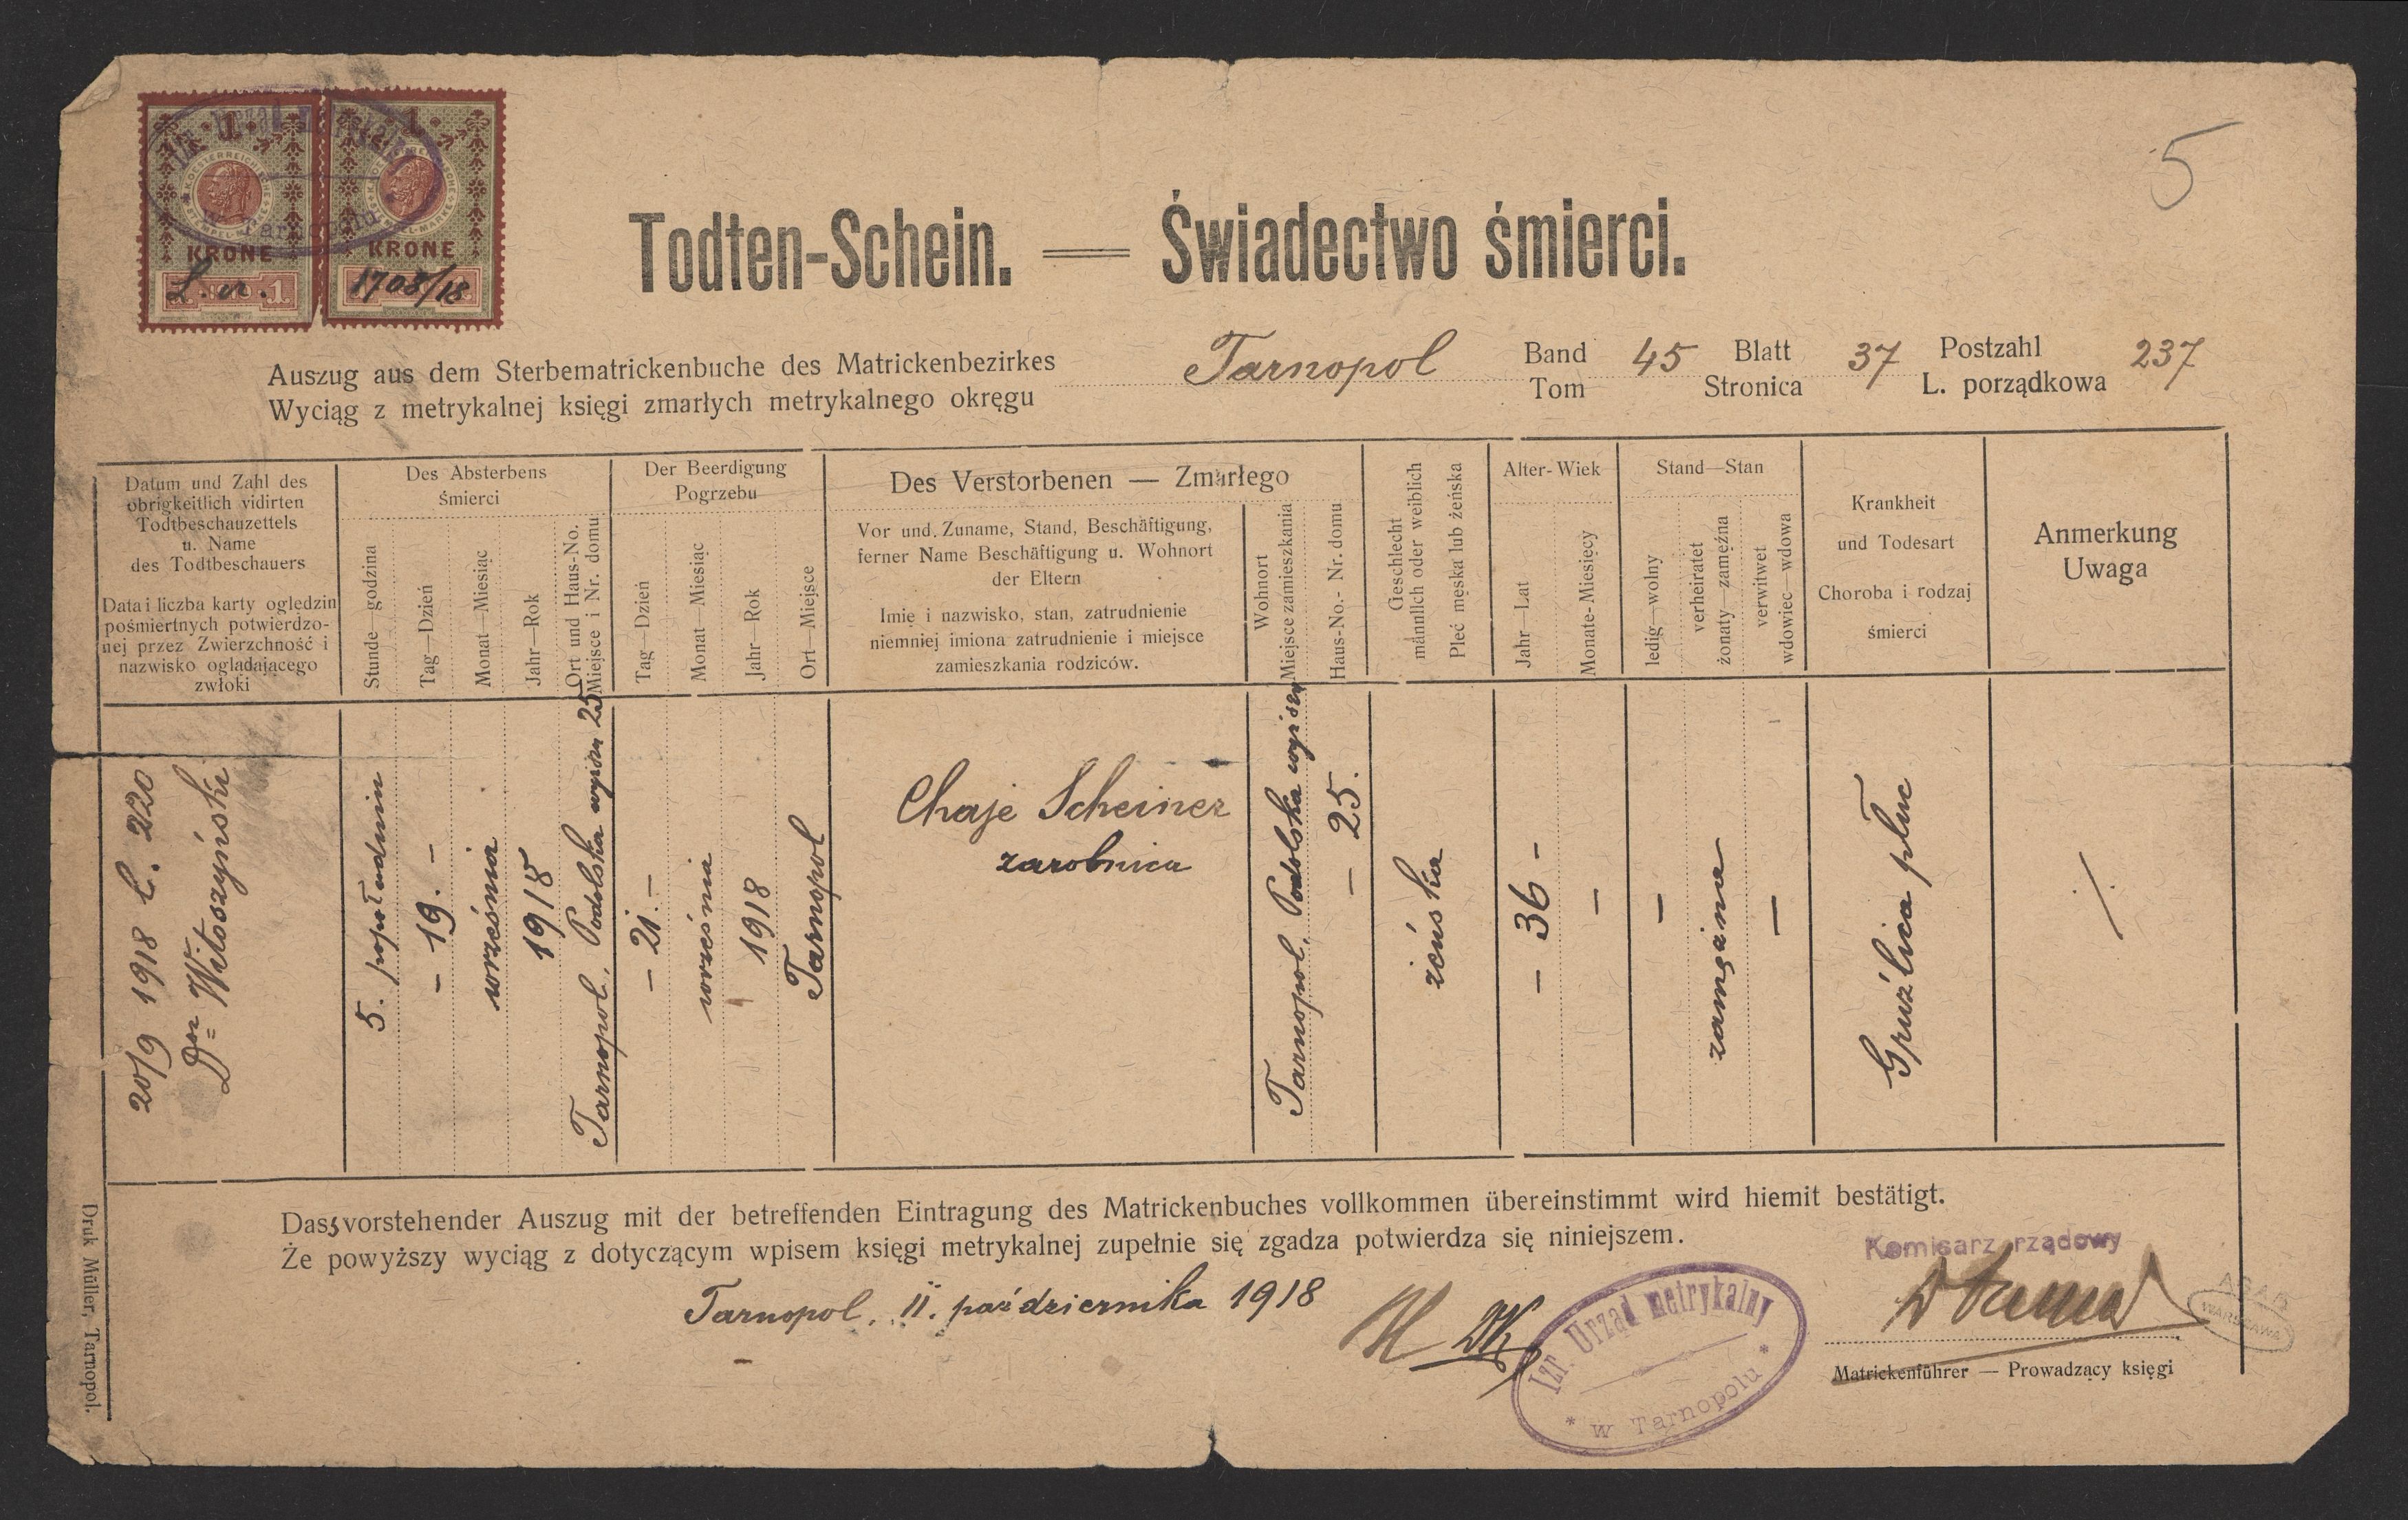 5
Izr. Urząd metrykalny
w Tarnopolu
KRONE KRONE
1 1708/18
Todten-Schein. — Świadectwo śmierci.
Auszug aus dem Sterbematrickenbuche des Matrickenbezirkes
Wyciąg z metrykalnej księgi zmarłych metrykalnego okręgu
Tarnopol
Band 45 Blatt 37 Postzahl 237
Tom Stronica L. porządkowa
Datum und Zahl des
obrigkeitlich vidirten
Todtbeschauzettels
u. Name
des Todtbeschauers
Data i liczba karty oględzin
pośmiertnych potwierdzo-
nej przez Zwierzchność i
nazwisko oglądającego
zwłoki
Des Absterbens
śmierci
Stunde—godzina
Tag—Dzień
Monat—Miesiąc
Jahr—Rok
Ort und Haus-No.
Miejsce i Nr. domu
Der Beerdigung
Pogrzebu
Tag—Dzień
Monat—Miesiąc
Jahr—Rok
Ort—Miejsce
Des Verstorbenen — Zmarłego
Vor und. Zuname, Stand, Beschäftigung,
ferner Name Beschäftigung u. Wohnort
der Eltern
Imię i nazwisko, stan, zatrudnienie
niemniej imiona zatrudnienie i miejsce
zamieszkania rodziców.
Wohnort
Miejsce zamieszkania
Haus-No.- Nr. domu
Geschlecht
männlich oder weiblich
Płeć męska lub żeńska
Alter-Wiek
Jahr—Lat
Monate-Miesięcy
Stand—Stan
ledig—wolny
verheiratet
żonaty—zamężna
verwitwet
wdowiec—wdowa
Krankheit
und Todesart
Choroba i rodzaj
śmierci
Anmerkung
Uwaga
20/9 1918 L. 220
Dor Witoszyński
5. popołudniu
- 19. -
września
1918
Tarnopol. Podolska wyższa 25
- 21. -
września
1918
Tarnopol
Chaje Scheiner
zarobnica
Tarnopol. Podolska wyższa
- 25.
żeńska
- 36 -
-
-
zamężna
-
Gruźlica płuc
./.
Dass vorstehender Auszug mit der betreffenden Eintragung des Matrickenbuches vollkommen übereinstimmt wird hiemit bestätigt.
Że powyższy wyciąg z dotyczącym wpisem księgi metrykalnej zupełnie się zgadza potwierdza się niniejszem.
Tarnopol, 11. października 1918
Izr. Urząd metrykalny
* w Tarnopolu *
Komisarz rządowy
WARSZAWA
Matrickenführer — Prowadzący księgi
Druk Müller, Tarnopol.